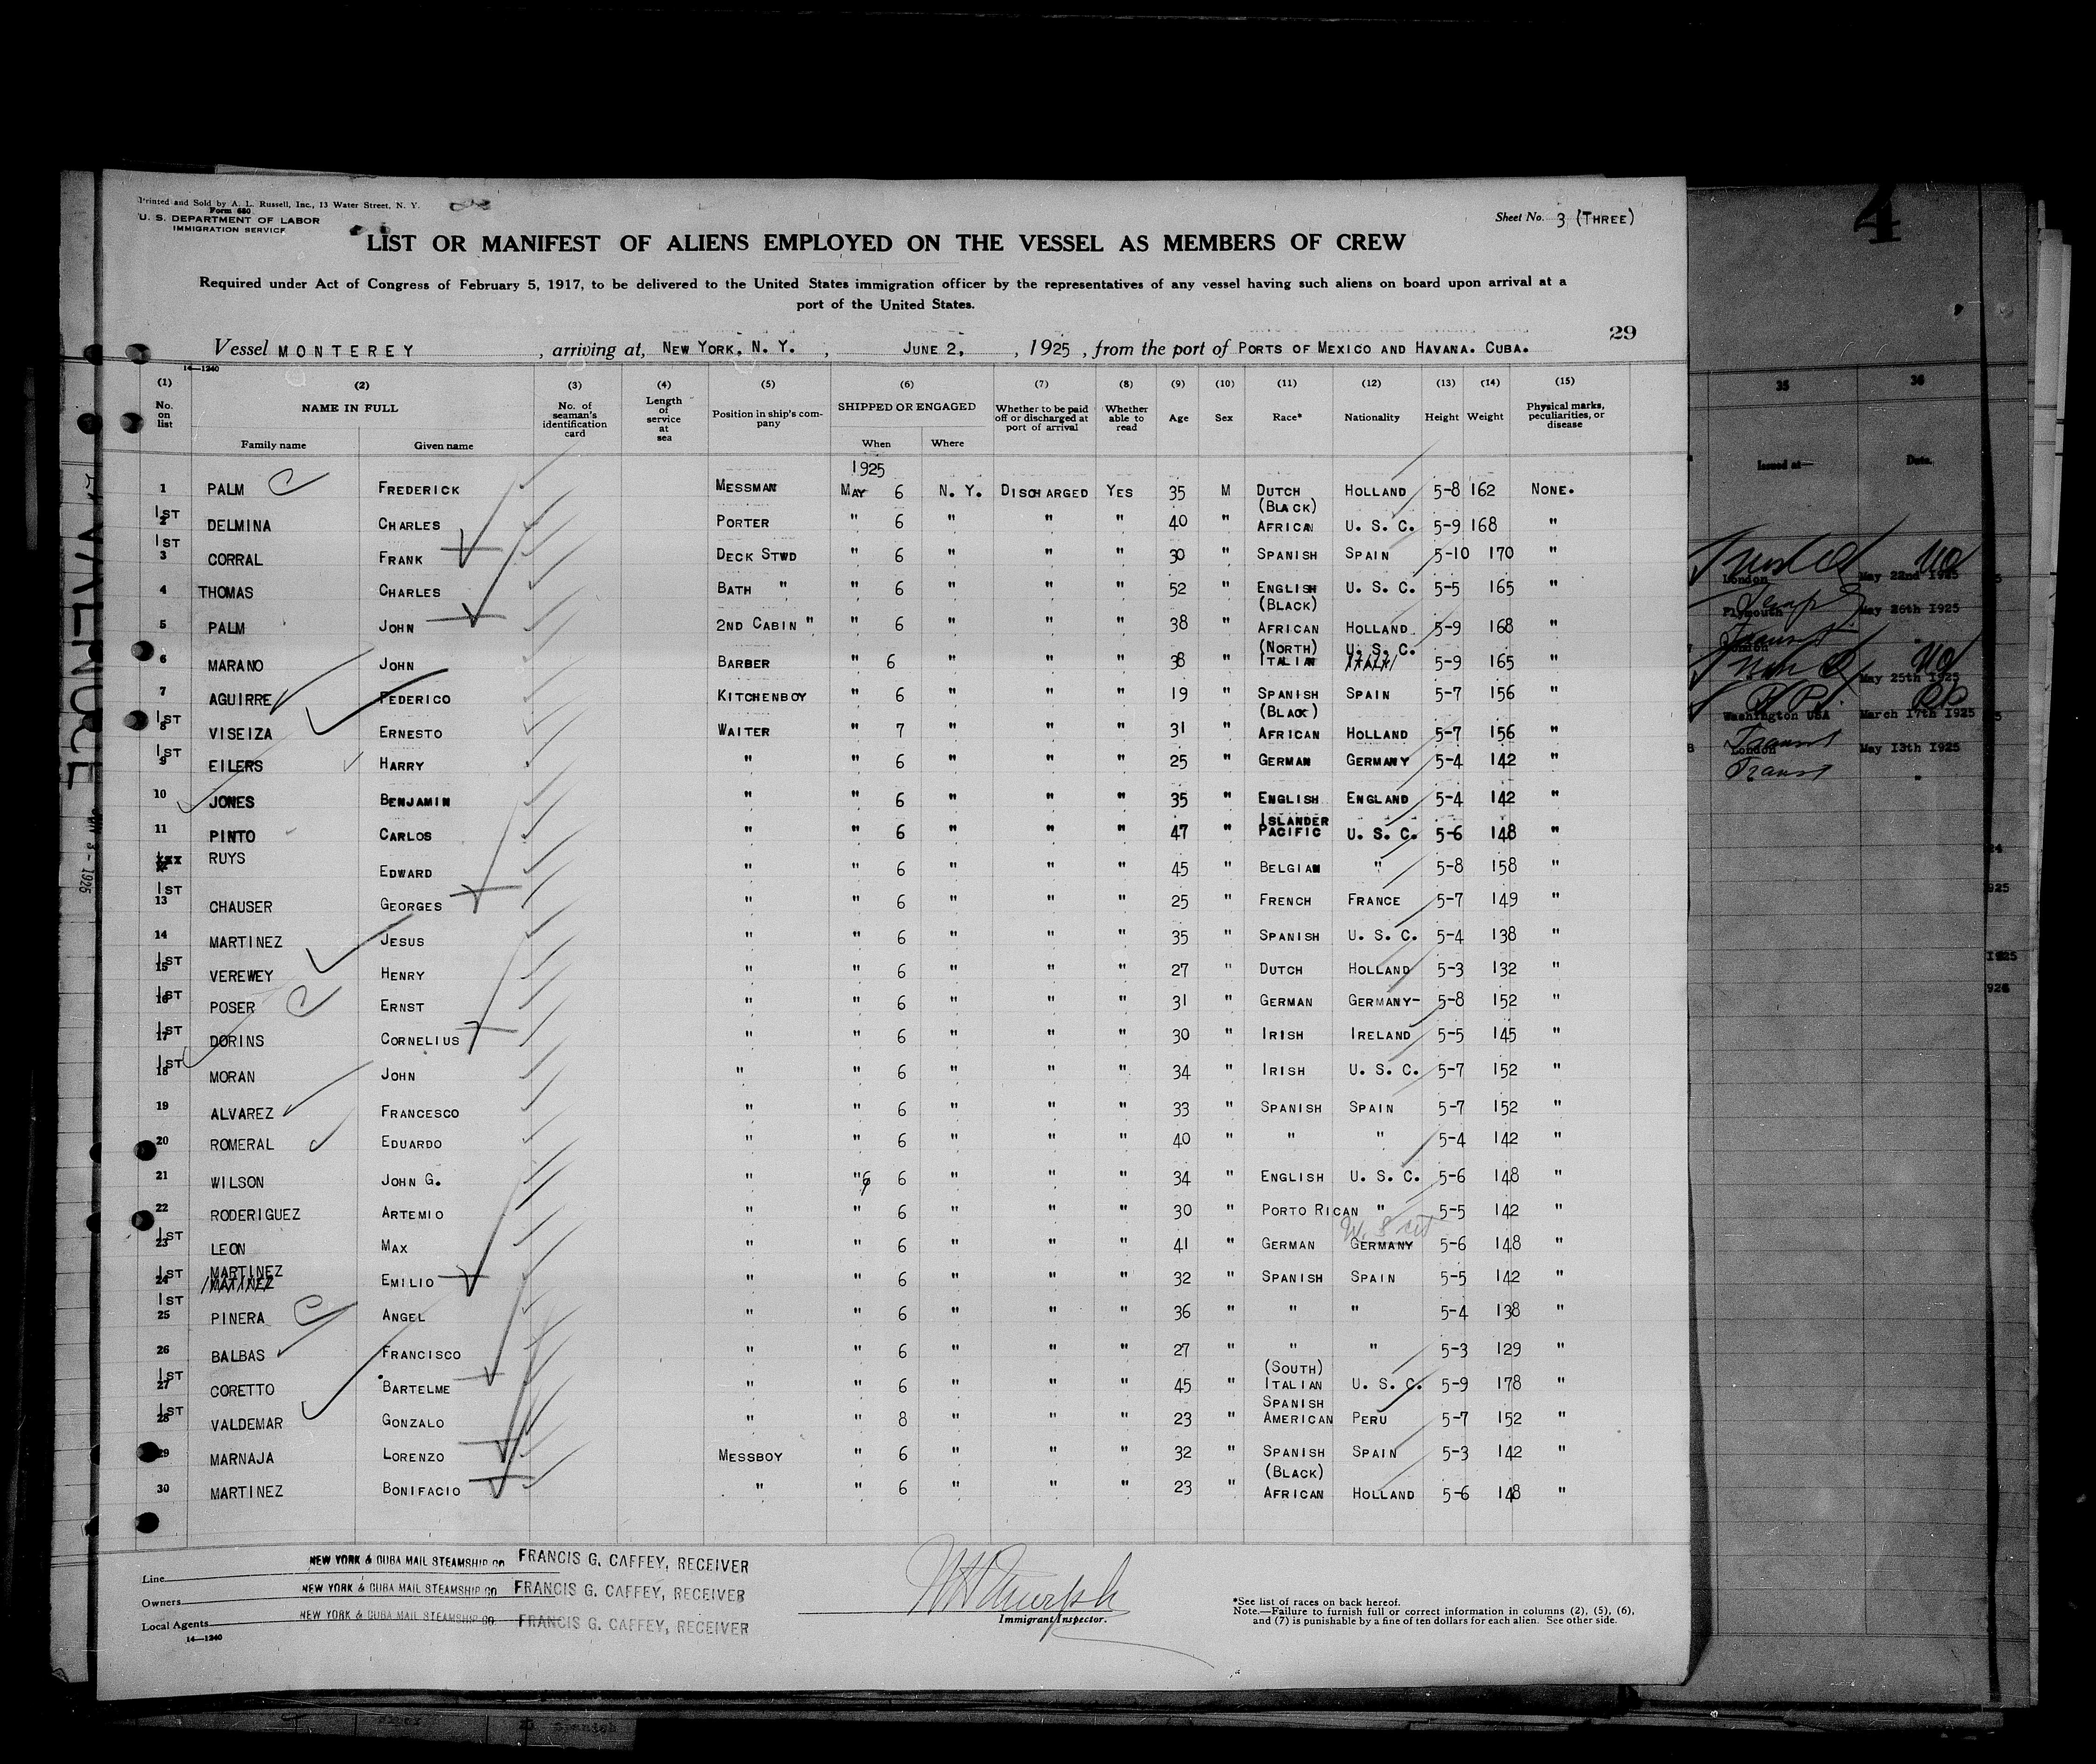 Printed and Sold by A. L. Russell, Inc., 13 Water Street, N. Y.
Form 680
U. S. DEPARTMENT OF LABOR
IMMIGRATION SERVICE
Sheet No. 3 (THREE)
LIST OR MANIFEST OF ALIENS EMPLOYED ON THE VESSEL AS MEMBERS OF CREW
Required under Act of Congress of February 5, 1917, to be delivered to the United States immigration officer by the representatives of any vessel having such aliens on board upon arrival at a
port of the United States.
29
Vessel MONTEREY, arriving at, NEW YORK, N. Y., JUNE 2, 1925, from the port of PORTS OF MEXICO AND HAVANA. CUBA.
14—1240
(1) (2) (3) (4) (5) (6) (7) (8) (9) (10) (11) (12) (13) (14) (15)
No. on list NAME IN FULL Family name Given name No. of seaman's identification card Length of service at sea Position in ship's company SHIPPED OR ENGAGED When Where Whether to be paid off or discharged at port of arrival Whether able to read Age Sex Race* Nationality Height Weight Physical marks, peculiarities, or disease
1925
1 PALM FREDERICK MESSMAN MAY 6 N. Y. DISCHARGED YES 35 M DUTCH HOLLAND 5-8 162 NONE.
1ST 2 DELMINA CHARLES PORTER " 6 " " " 40 " (BLACK) AFRICAN U. S. C. 5-9 168 "
1ST 3 CORRAL FRANK DECK STWD " 6 " " " 30 " SPANISH SPAIN 5-10 170 "
4 THOMAS CHARLES BATH " " 6 " " " 52 " ENGLISH U. S. C. 5-5 165 "
5 PALM JOHN 2ND CABIN " " 6 " " " 38 " (BLACK) AFRICAN HOLLAND 5-9 168 "
6 MARANO JOHN BARBER " 6 " " " 38 " (NORTH) ITALIAN U. S. C. ITALY 5-9 165 "
7 AGUIRRE FEDERICO KITCHENBOY " 6 " " " 19 " SPANISH SPAIN 5-7 156 "
1ST 8 VISEIZA ERNESTO WAITER " 7 " " " 31 " (BLACK) AFRICAN HOLLAND 5-7 156 "
1ST 9 EILERS HARRY " " 6 " " " 25 " GERMAN GERMANY 5-4 142 "
10 JONES BENJAMIN " " 6 " " " 35 " ENGLISH ENGLAND 5-4 142 "
11 PINTO CARLOS " " 6 " " " 47 " ISLANDER PACIFIC U. S. C. 5-6 148 "
RUYS EDWARD " " 6 " " " 45 " BELGIAN " 5-8 158 "
1ST 13 CHAUSER GEORGES " " 6 " " " 25 " FRENCH FRANCE 5-7 149 "
14 MARTINEZ JESUS " " 6 " " " 35 " SPANISH U. S. C. 5-4 138 "
1ST 15 VEREWEY HENRY " " 6 " " " 27 " DUTCH HOLLAND 5-3 132 "
1ST 16 POSER ERNST " " 6 " " " 31 " GERMAN GERMANY- 5-8 152 "
1ST 17 DORINS CORNELIUS " " 6 " " " 30 " IRISH IRELAND 5-5 145 "
1ST 18 MORAN JOHN " " 6 " " " 34 " IRISH U. S. C. 5-7 152 "
19 ALVAREZ FRANCESCO " " 6 " " " 33 " SPANISH SPAIN 5-7 152 "
20 ROMERAL EDUARDO " " 6 " " " 40 " " " 5-4 142 "
21 WILSON JOHN G. " " 6 6 " " " 34 " ENGLISH U. S. C. 5-6 148 "
22 RODERIGUEZ ARTEMIO " " 6 " " " 30 " PORTO RICAN " 5-5 142 "
1ST 23 LEON MAX " " 6 " " " 41 " GERMAN GERMANY 5-6 148 "
1ST 24 MARTINEZ MATINEZ EMILIO " " 6 " " " 32 " SPANISH SPAIN 5-5 142 "
1ST 25 PINERA ANGEL " " 6 " " " 36 " " " 5-4 138 "
26 BALBAS FRANCISCO " " 6 " " " 27 " " " 5-3 129 "
1ST 27 CORETTO BARTELME " " 6 " " " 45 " (SOUTH) ITALIAN U. S. C. 5-9 178 "
1ST 28 VALDEMAR GONZALO " " 8 " " " 23 " SPANISH AMERICAN PERU 5-7 152 "
29 MARNAJA LORENZO MESSBOY " 6 " " " 32 " SPANISH SPAIN 5-3 142 "
30 MARTINEZ BONIFACIO " " 6 " " " 23 " (BLACK) AFRICAN HOLLAND 5-6 148 "
Line NEW YORK & CUBA MAIL STEAMSHIP CO FRANCIS G. CAFFEY, RECEIVER
Owners NEW YORK & CUBA MAIL STEAMSHIP CO FRANCIS G. CAFFEY, RECEIVER
Local Agents NEW YORK & CUBA MAIL STEAMSHIP CO. FRANCIS G. CAFFEY, RECEIVER
14—1240
Immigrant Inspector.
*See list of races on back hereof.
Note.—Failure to furnish full or correct information in columns (2), (5), (6),
and (7) is punishable by a fine of ten dollars for each alien. See other side.
4
35 36
Issued at— Date.
London May 22nd 1925
Plymouth May 26th 1925
Transit
May 25th 1925
Washington USA March 17th 1925
London May 13th 1925
Transit
JUN 3 - 1925
Spanish